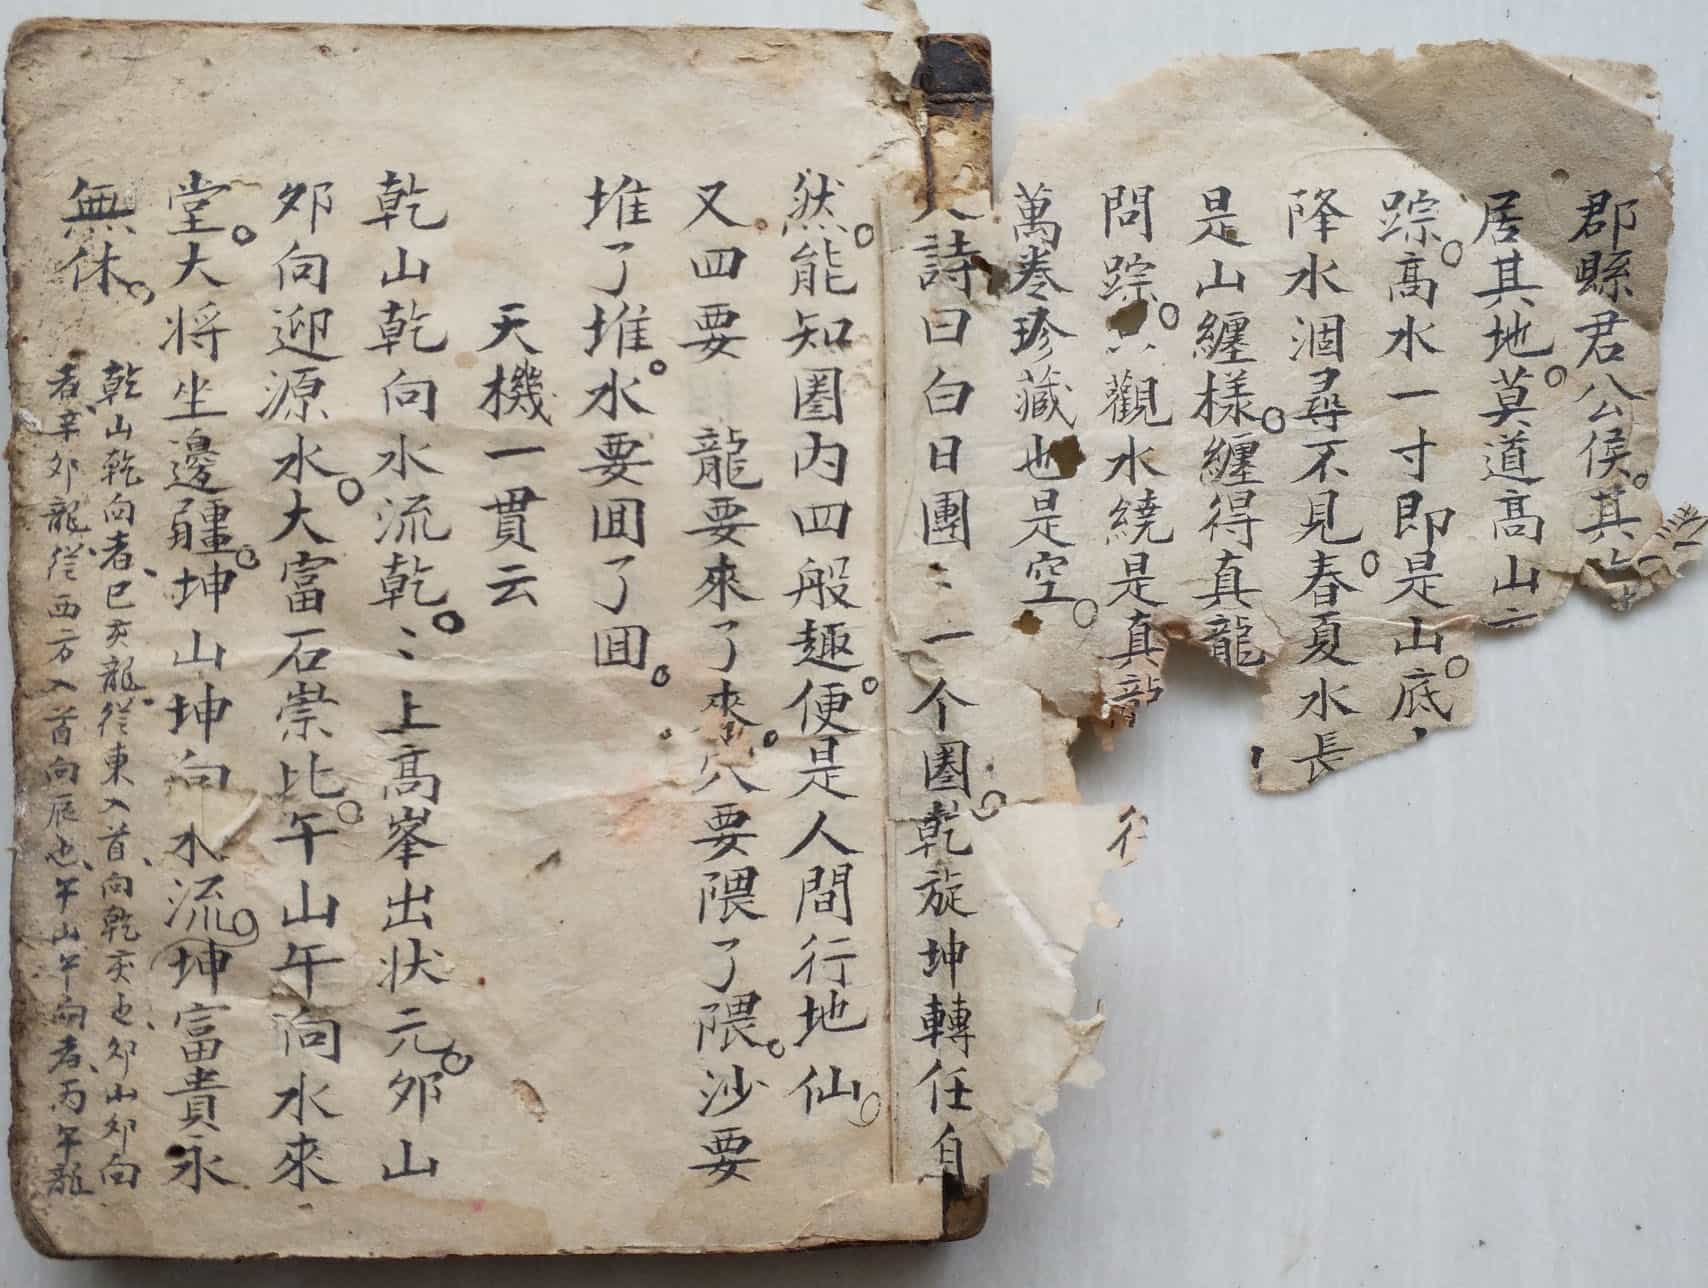 郡縣君公侯。其
居其地。莫道高山
踪。高水一寸即是山。底
降水涸尋不見。春夏水長
是山纏樣。纏得真龍
問踪。觀水繞是真龍
萬卷珍藏也是空。
詩曰白日團〻一个圈。乾旋坤轉任自
然。能知圈内四般趣。便是人間行地仙。
又四要 龍要來了來。穴要隈了隈。沙要
堆了堆。水要囬了囬。
天機一貫云
乾山乾向水流乾。〻上高峯出状元。夘山
夘向迎源水。大富石崇比。午山午向水來
堂。大将坐邊疆。坤山坤向水流。坤富貴永
無休。
乾山乾向者、巳亥龍、從東入首、向乾亥也、夘山夘向
者、辛夘龍、從西方入首向辰也、午山午向者、丙午龍